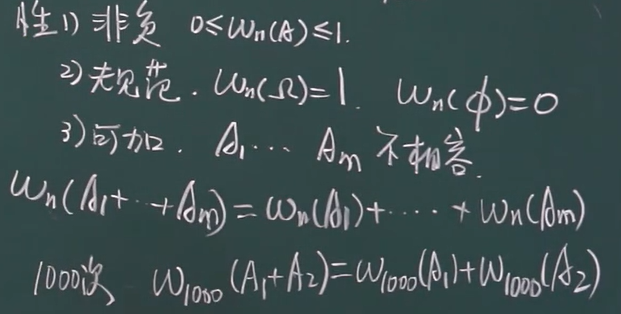 性1) 非负 0≤ωn(A)≤1.
2) 规范. ωn(Ω)=1. ωn(ϕ)=0
3) 可加. A1⋯ Am 不相容.
ωn(A1+⋯+Am)=ωn(A1)+⋯⋯+ωn(Am)
1000次 ω1000(A1+A2)=ω1000(A1)+ω1000(A2)